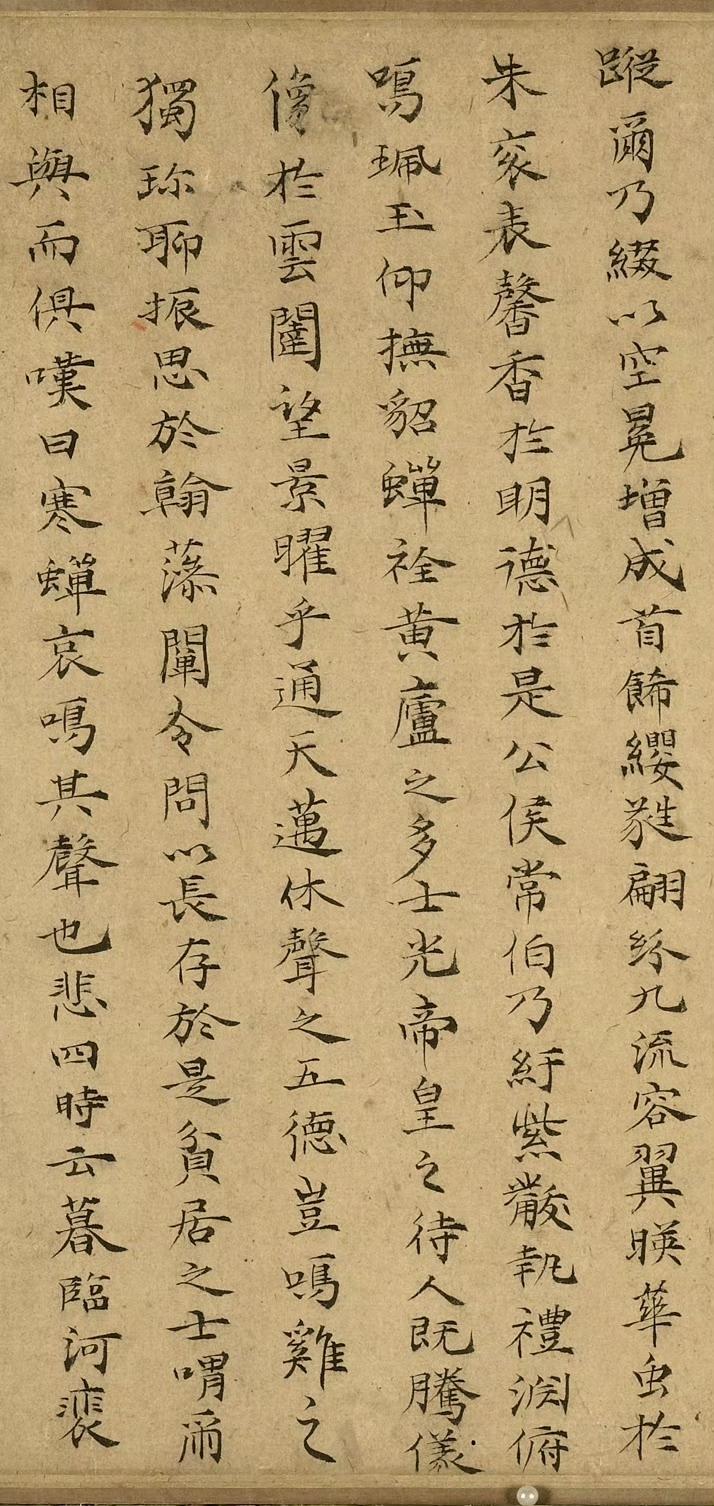 蹤爾乃綴以空冕増成首餙纓蕤翩紛九流容翼暎華虫於
朱衮表馨香於明德於是公侯常伯乃紆紫黻執禮淵俯
鳴珮玉仰撫貂蟬黄廬之多士光帝皇之待人既騰儀
像於雲闥望景曜乎通天邁休聲之五徳豈鳴雞之
獨珎聊振思於翰藻闡令問以長存於是貧居之士喟爾
相與而俱嘆曰寒蟬哀鳴其聲也悲四時云暮臨河裵